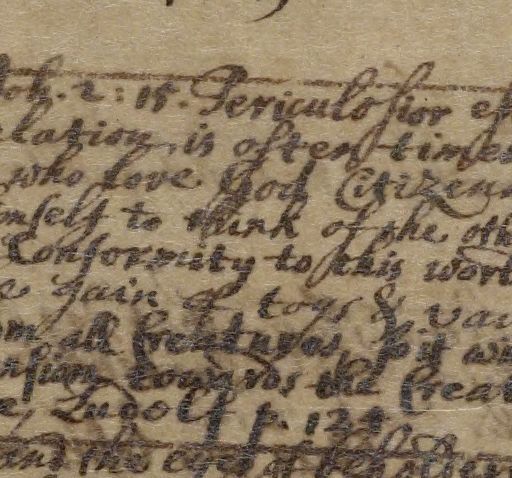 Joh. 2: 15. Periculosior es
lation is often times
who love God Citizens
mself to think of the oth
Conformity to this world
e gain of toys & van
om all Creatures, so it w
nsion towards the Creat
e, Ludolf p. 124
and the eyes of beholders